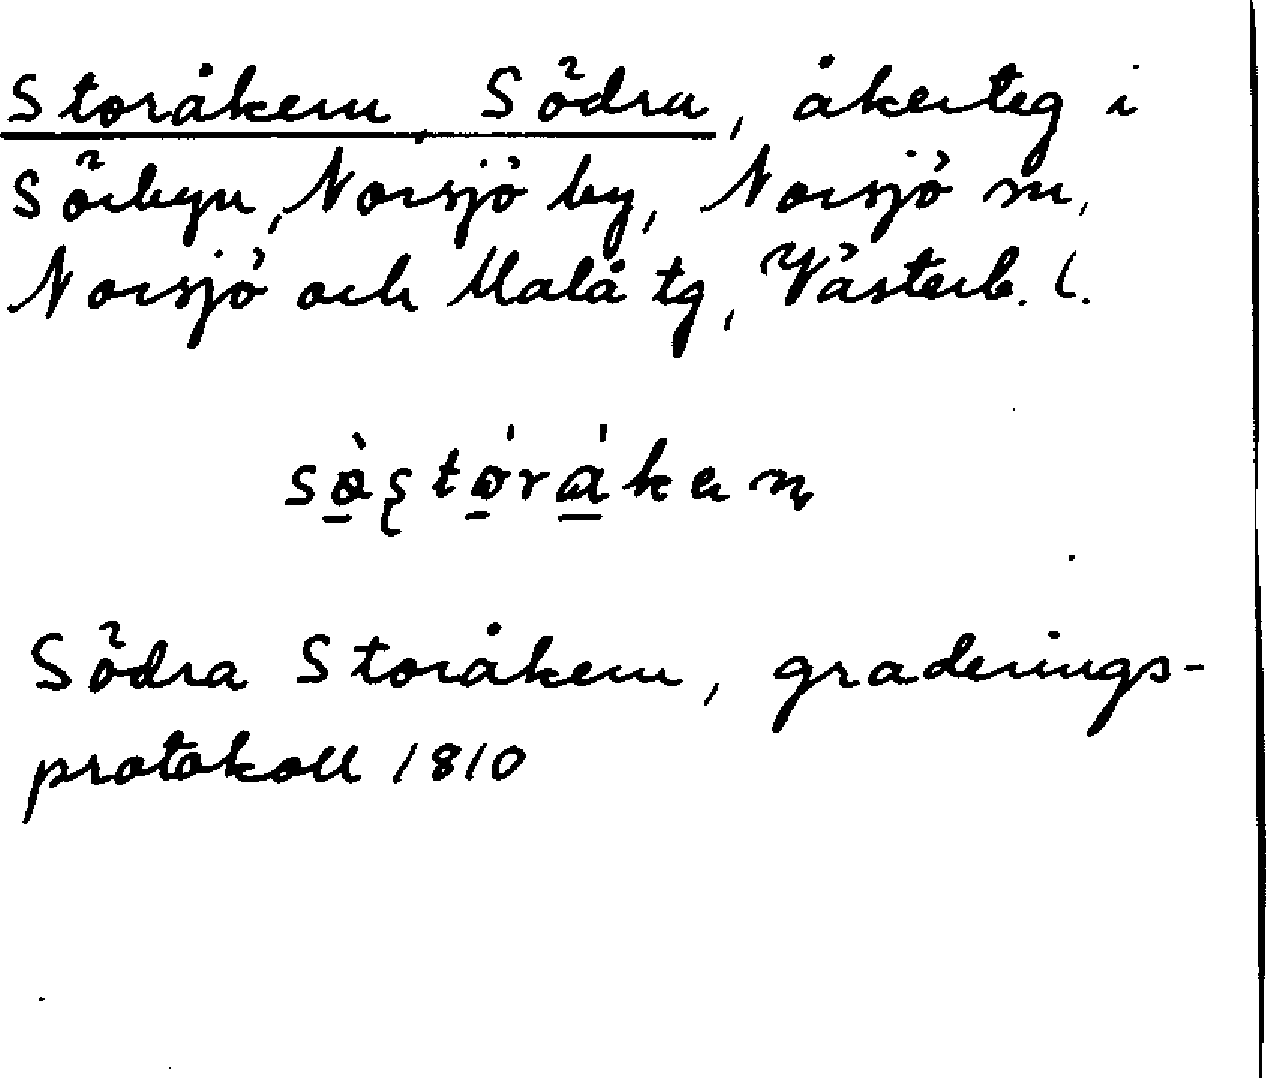 Storåkern, Södra, åkerteg i
Sörbyn, Norsjö by, Norsjö sn,
Norsjö och Malå tg, Västerb. l.
Södra Storåkern, graderings-
protokoll 1810